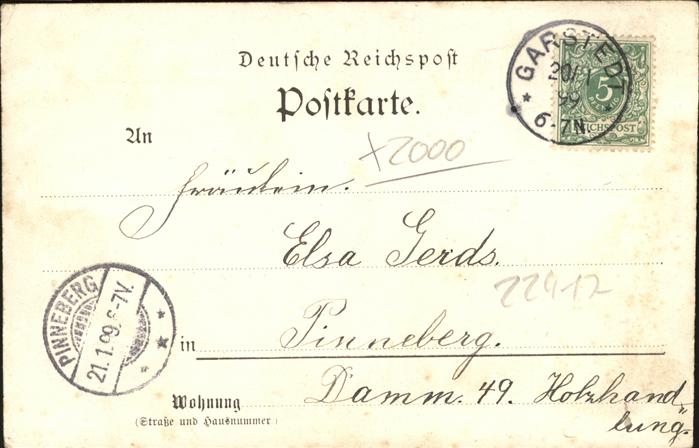 Deutsche Reichspost
Postkarte.
GARSTEDT
20/1
99
6-7N.
5
REICHSPOST
An
x2000
Fräulein.
Elsa Gerds.
22412
PINNEBERG
21.1.99.6-7V.
in Pinneberg.
Wohnung
(Straße und Hausnummer)
Damm. 49. Holzhand„
lung.